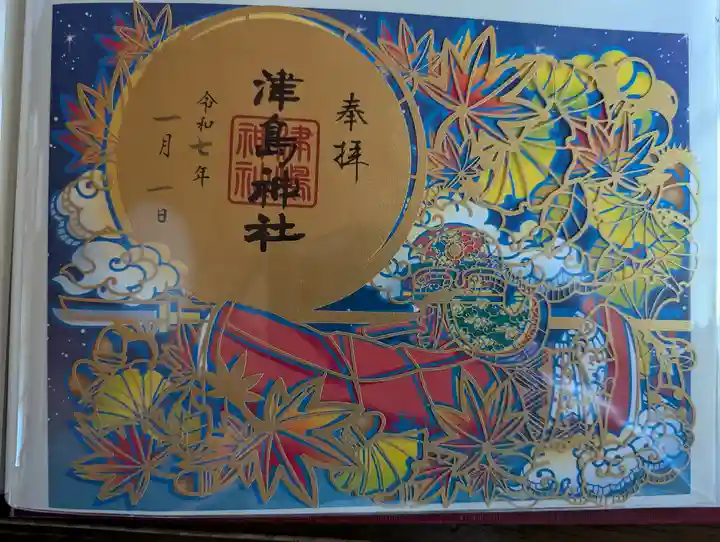 奉拝
津島神社
津島神社
令和七年
一月一日